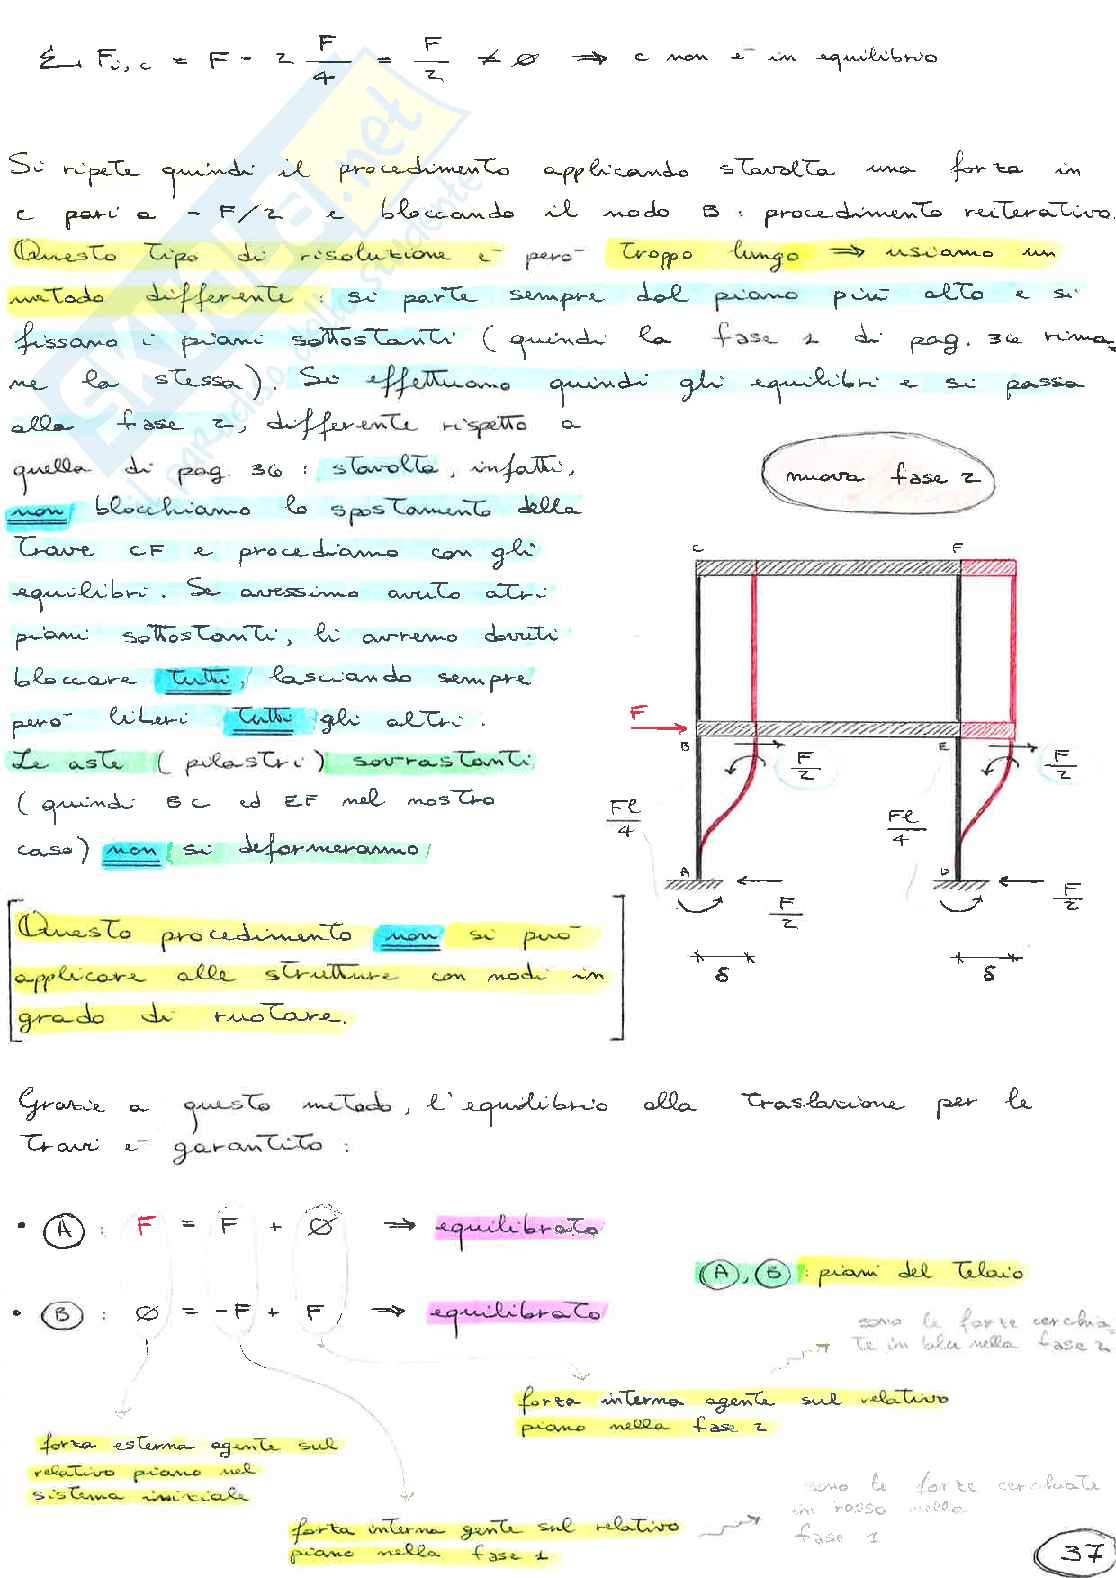 Σ Fi,c = F - 2 F/4 = F/2 ≠ ∅ ⇒ c non è in equilibrio
Si ripete quindi il procedimento applicando stavolta una forza in
c pari a - F/2 e bloccando il nodo B : procedimento reiterativo.
Questo tipo di risoluzione è però troppo lungo ⇒ usiamo un
metodo differente : si parte sempre dal piano più alto e si
fissano i piani sottostanti (quindi la fase 1 di pag. 36 rima-
ne la stessa). Si effettuano quindi gli equilibri e si passa
alla fase 2, differente rispetto a
quella di pag. 36 : stavolta, infatti,
non blocchiamo lo spostamento della
trave CF e procediamo con gli
equilibri. Se avessimo avuto atri
piani sottostanti, li avremo dovuti
bloccare tutti, lasciando sempre
però liberi tutti gli altri.
Le aste (pilastri) sovrastanti
(quindi BC ed EF nel nostro
caso) non si deformeranno
nuova fase 2
C F
F
B E
F/2 F/2
Fl/4 Fl/4
A D
F/2 F/2
δ δ
[Questo procedimento non si può
applicare alle strutture con nodi in
grado di ruotare.]
Grazie a questo metodo, l'equilibrio alla traslazione per le
travi è garantito :
• A : F = F + ∅ ⇒ equilibrato
A, B : piani del telaio
• B : ∅ = -F + F ⇒ equilibrato
sono le forze cerchia-
te in blu nella fase 2
forza interna agente sul relativo
piano nella fase 2
forza esterna agente sul
relativo piano nel
sistema iniziale
sono le forze cerchiate
in rosso nella
fase 1
forza interna gente sul relativo
piano nella fase 1
37
SKUOLA.net
il PARADISO dello studente